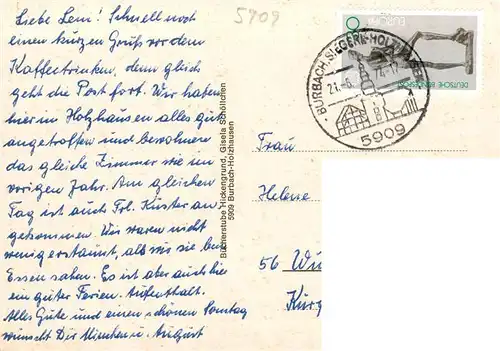 5909
Liebe Leni! Schnell noch
einen kurzen Gruß vor dem
Kaffeetrinken, denn gleich
geht die Post fort. Wir haben
hier in Holzhausen alles gut
angetroffen und bewohnen
das gleiche Zimmer wie im
vorigen Jahr. Am gleichen
Tag ist auch Frl. Küster an-
gekommen. Wir waren nicht
wenig erstaunt, als wir sie beim
Essen sahen. Es ist aber auch hier
ein guter Ferien-Aufenthalt.
Alles Gute und einen schönen Sonntag
wünscht Dir und August
Bücherstube Hickengrund, Gisela Schöllchen
5909 Burbach-Holzhausen
EUROPA
DEUTSCHE BUNDESPOST
BURBACH, SIEGERL-HOLZHAUSEN
21.-6.74-17
5909
Frau
Helene
56 Wu
Kurz